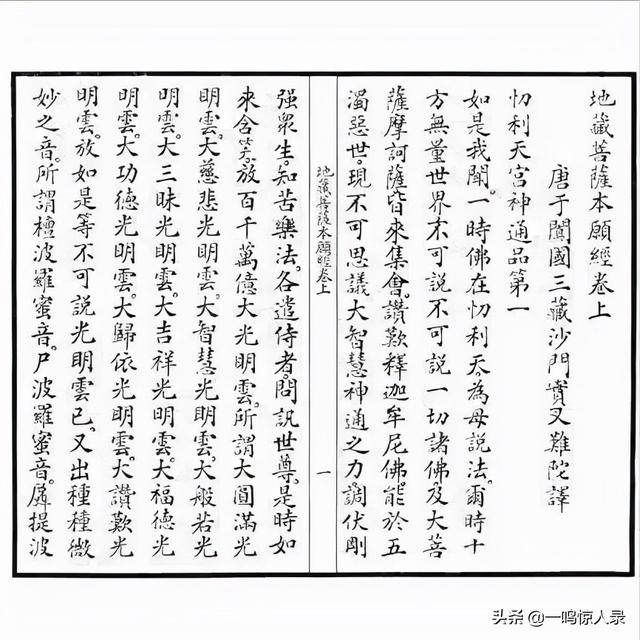 地藏菩薩本願經卷上
唐于闐國三藏沙門實叉難陀譯
忉利天宮神通品第一
如是我聞。一時佛在忉利天。為母說法。爾時十
方無量世界。不可說不可說一切諸佛。及大菩
薩摩訶薩。皆來集會。讚歎釋迦牟尼佛。能於五
濁惡世。現不可思議大智慧神通之力。調伏剛
地藏菩薩本願經卷上
一
强眾生。知苦樂法。各遣侍者。問訊世尊。是時如
來含笑。放百千萬億大光明雲。所謂大圓滿光
明雲。大慈悲光明雲。大智慧光明雲。大般若光
明雲。大三昧光明雲。大吉祥光明雲。大福德光
明雲。大功德光明雲。大歸依光明雲。大讚歎光
明雲。放如是等不可說光明雲已。又出種種微
妙之音。所謂檀波羅蜜音。尸波羅蜜音。羼提波
头条 @一鸣惊人录